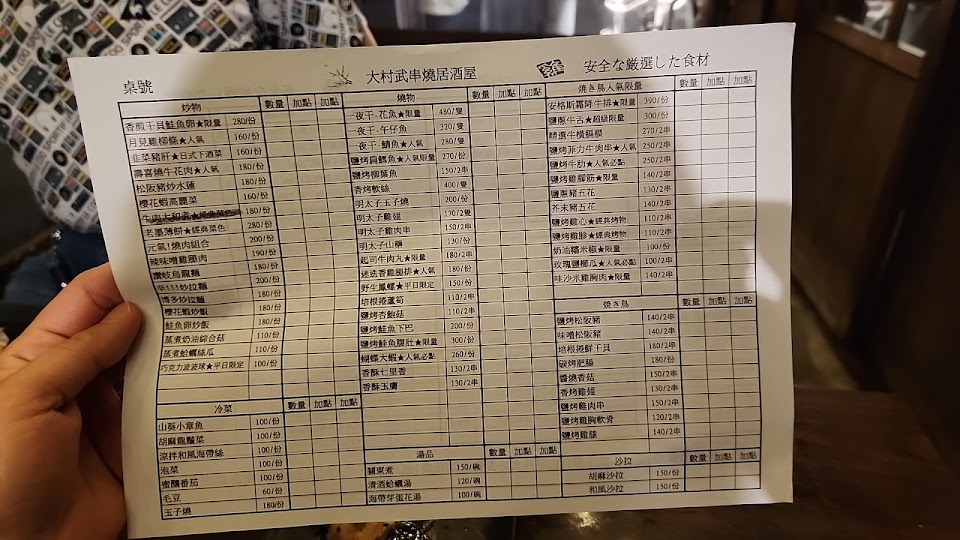 桌號
大村武串燒居酒屋
安全な厳選した食材
炒物 數量 加點 加點
香煎干貝鮭魚卵★限量 280/份
月見雞柳條★人氣 160/份
韭菜豬肝★日式下酒菜 160/份
壽喜燒牛花肉★人氣 180/份
松阪豬炒水蓮 180/份
櫻花蝦高麗菜 160/份
180/份
老墨薄餅★經典菜色 280/份
元氣!燒肉組合 200/份
辣味噌雞腿肉 190/份
讚岐烏龍麵 180/份
辛!!!炒拉麵 200/份
博多炒拉麵 180/份
櫻花蝦炒飯 180/份
鮭魚卵炒飯 180/份
蒸煮奶油綜合菇 110/份
蒸煮蛤蠣絲瓜 110/份
巧克力波波球★平日限定 100/份
冷菜 數量 加點 加點
山葵小章魚 100/份
胡麻龍鬚菜 100/份
涼拌和風海帶絲 100/份
泡菜 100/份
蜜釀番茄 100/份
毛豆 60/份
玉子燒 180/份
燒物 數量 加點 加點
一夜干-花魚★限量 480/隻
一夜干-午仔魚 320/隻
一夜干-鯖魚★人氣 280/隻
鹽烤扁鱈魚★人氣限量 270/份
鹽烤柳葉魚 150/2串
香烤軟絲 400/隻
明太子玉子燒 200/份
明太子雞翅 170/2隻
明太子雞肉串 150/2串
明太子山藥 130/份
起司牛肉丸★限量 180/2串
迷迭香雞腿排★人氣 180/份
野生鳳螺★平日限定 150/份
培根捲蘆筍 110/2串
鹽烤杏鮑菇 110/2串
鹽烤鮭魚下巴 200/份
鹽烤鮭魚腹肚★限量 300/份
蝴蝶大蝦★人氣必點 260/份
香酥七里香 130/2串
香酥玉膚 130/2串
湯品 數量 加點 加點
關東煮 150/碗
清酒蛤蠣湯 120/碗
海帶芽蛋花湯 100/碗
焼き鳥人氣限量 數量 加點 加點
安格斯霜降牛排★限量 390/份
鹽煎牛舌★超級限量 300/份
精選牛橫膈膜 270/2串
鹽烤菲力牛肉串★人氣 250/2串
鹽烤牛肋★人氣必點 250/2串
鹽烤雞腳筋★限量 140/2串
鹽蔥豬五花 130/2串
芥末豬五花 140/2串
鹽烤雞心★經典烤物 110/2串
鹽烤雞胗★經典烤物 110/2串
奶油糯米椒★限量 100/份
玫瑰鹽櫛瓜★人氣必點 100/2串
哇沙米雞胸肉★限量 140/2串
焼き鳥 數量 加點 加點
鹽烤松阪豬 140/2串
味噌松阪豬 140/2串
培根捲鮮干貝 180/2串
碳烤肥腸 180/份
醬燒香菇 150/2串
香烤雞翅 130/2串
鹽烤雞肉串 150/2串
鹽烤雞胸軟骨 120/2串
鹽烤雞膝 140/2串
沙拉 數量 加點 加點
胡麻沙拉 150/份
和風沙拉 150/份